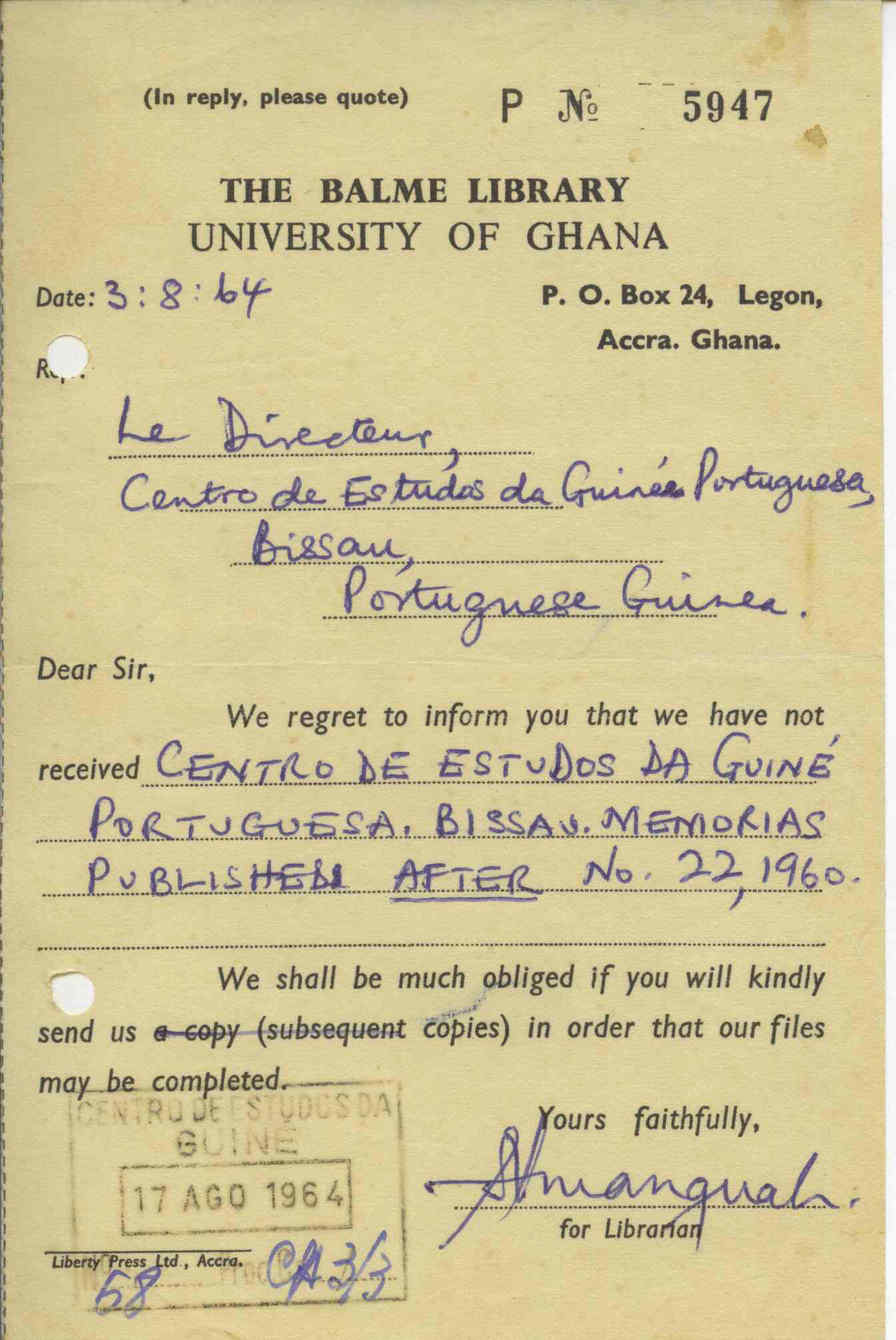 (In reply, please quote) P № 5947
THE BALME LIBRARY
UNIVERSITY OF GHANA
Date: 3:8:64
P. O. Box 24, Legon,
Accra. Ghana.
Le Directeur,
Centro de Estudos da Guinée Portuguesa,
Bissau,
Portuguese Guinea.
Dear Sir,
We regret to inform you that we have not
received CENTRO DE ESTUDOS DA GUINÉ
PORTUGUESA. BISSAU. MEMORIAS
PUBLISHED AFTER No. 22, 1960.
We shall be much obliged if you will kindly
send us a copy (subsequent copies) in order that our files
may be completed.
Yours faithfully,
for Librarian
CENTRO DE ESTUDOS DA
GUINÉ
17 AGO 1964
Liberty Press Ltd., Accra.
58 CA 3/3